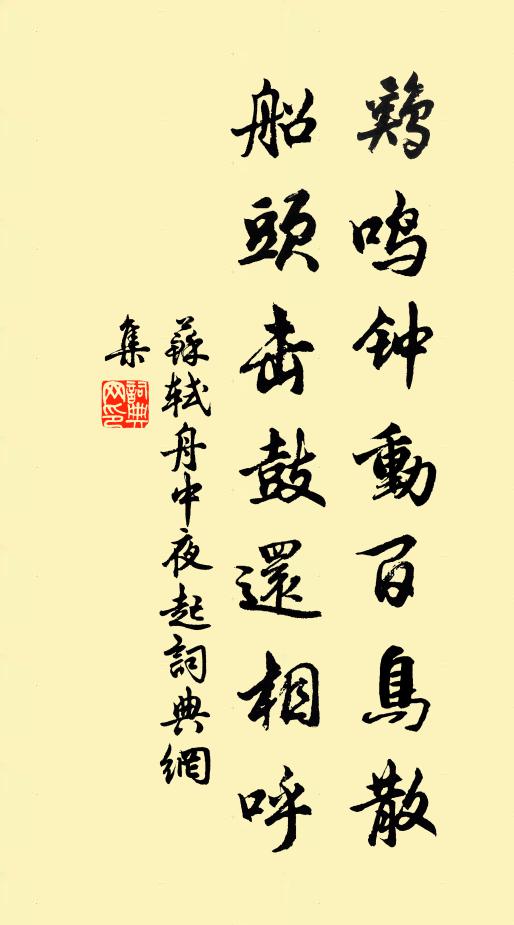 鷄鳴钟動百鳥散
船頭击鼓還相呼
蘇軾舟中夜起詞典網
集
詞典网印